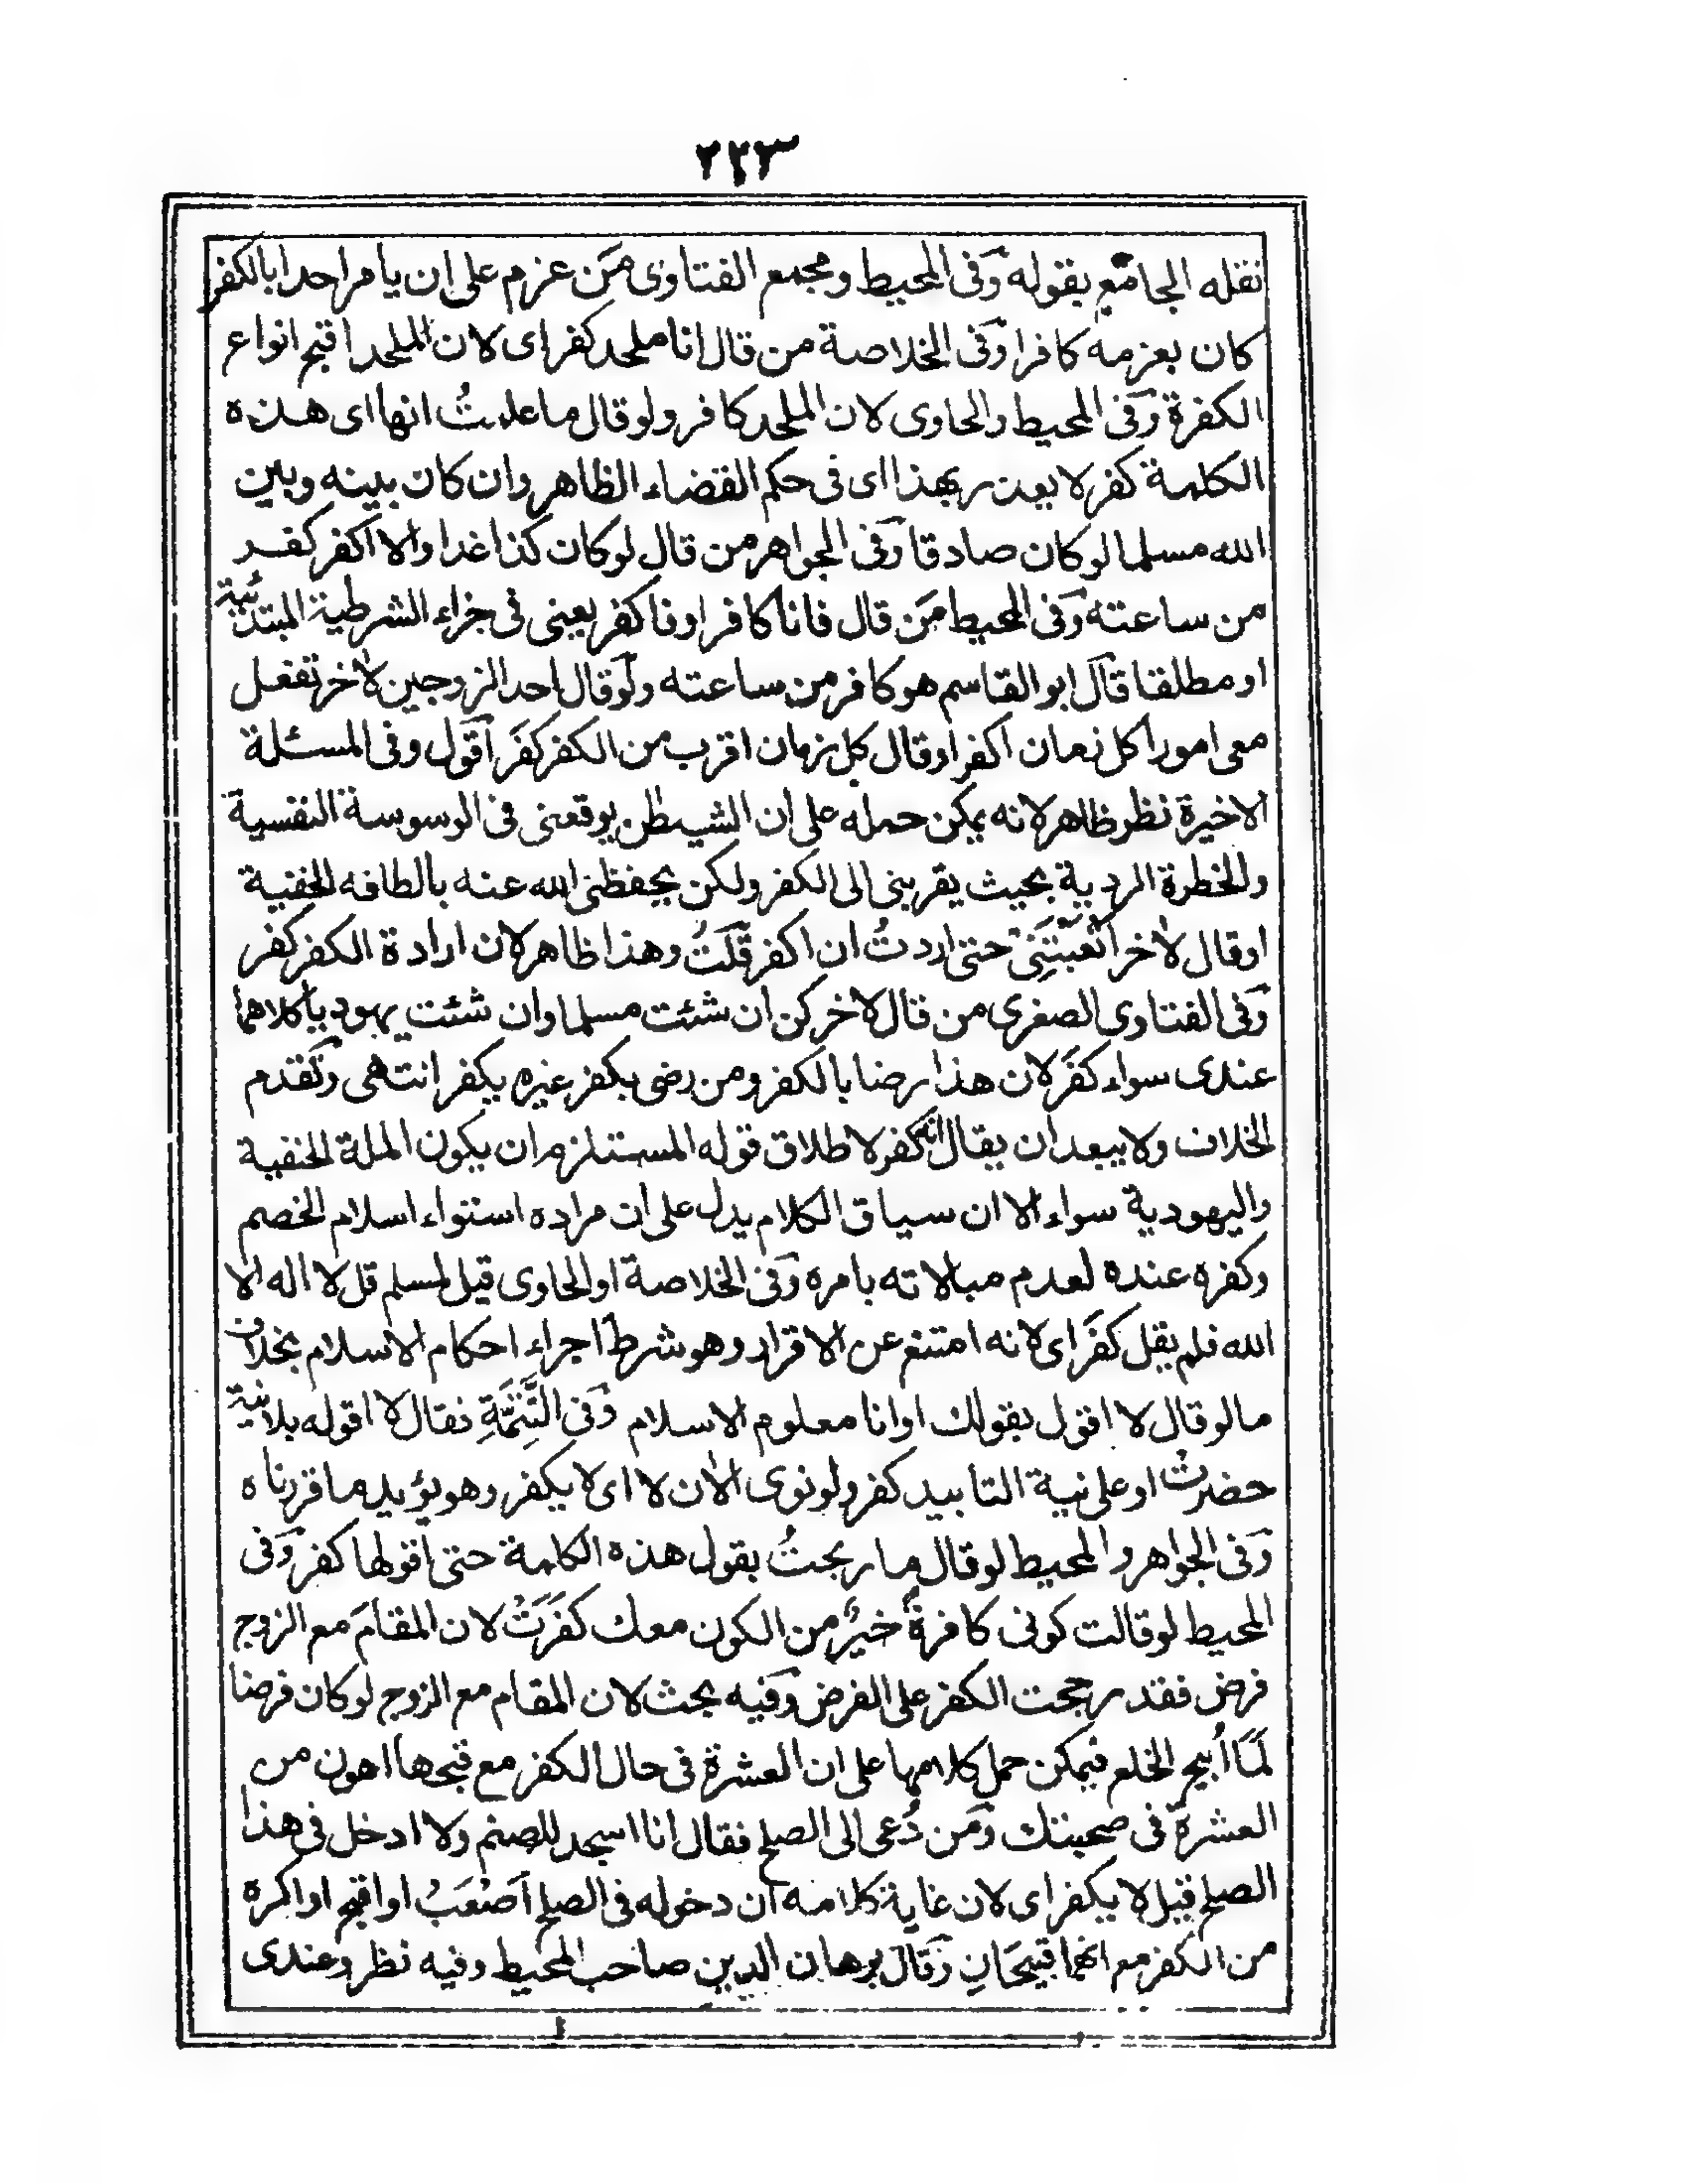 ٢٢٣
نقله الجامع بقوله وفى المحيط ومجمع الفتاوى من عزم على ان يامر احدا بالكفر
كان بعزمه كافرا وفى الخلاصة من قال انا ملحد كفر اى لان الملحد اقبح انواع
الكفرة وفى المحيط والحاوى لان الملحد كافر ولو قال ما علمتُ انها اى هذه
الكلمة كفر لا يعذر بهذا اى فى حكم القضاء الظاهر وان كان بينه وبين
الله مسلما لو كان صادقا وفى الجواهر من قال لو كان كذا غدا والا اكفر كفر
من ساعته وفى المحيط مَن قال فانا كافر او فاكفر يعنى فى جزاء الشرطية المبتدئية
او مطلقا قال ابو القاسم هو كافر من ساعته ولو قال احد الزوجين لاٰخر تفعل
معى امورا كل زمان اكفر او قال كل زمان اقرب من الكفر كفَر اقول وفى المسئلة
الاخيرة نظر ظاهر لانه يمكن حمله على ان الشيطٰن يوقعنى فى الوسوسة النفسية
والخطرة الردية بحيث يقربنى الى الكفر ولكن يحفظنى الله عنه بالطافه الخفية
او قال لاٰخر اتعبتَنِى حتى اردتُ ان اكفر قلتُ وهذا ظاهر لان ارادة الكفر كفر
وفى الفتاوى الصغرى من قال لاخر كن ان شئت مسلما وان شئت يهوديا كلاهما
عندى سواء كفَر لان هذا رضا بالكفر ومن رضى بكفر غيره يكفر انتهى وتقدم
الخلاف ولا يبعد ان يقال انه كفر لاطلاق قوله المستلزم ان يكون الملة الحنفية
واليهودية سواء الا ان سياق الكلام يدل على ان مراده استواء اسلام الخصم
وكفره عنده لعدم مبالاته بامره وفى الخلاصة او الحاوى قيل لمسلم قل لا اله الا
الله فلم يقل كفَر اى لانه امتنع عن الاقرار وهو شرط اجراء احكام الاسلام بخلاف
ما لو قال لا اقول بقولك او انا معلوم الاسلام وفى التَّتِمَّةِ فقال لا اقوله بلا نية
حضرتْ او على نية التابيد كفر ولو نوى الاٰن لا اى لا يكفر وهو يؤيد ما قررناه
وفى الجواهر والمحيط لو قال ما ربحتُ بقول هذه الكلمة حتى اقولها كفر وفى
المحيط لو قالت كونى كافرةً خيرٌ من الكون معك كفَرَتْ لان المقامَ مع الزوج
فرض فقد رجحت الكفر على الفرض وفيه بحث لان المقام مع الزوج لو كان فرضا
لمَا اُبيح الخلع فيمكن حمل كلامها على ان العشرة فى حال الكفر مع قبحها اهون من
العشرة فى صحبتك ومَن دُعى الى الصلح فقال انا اسجد للصنم ولا ادخل فى هذا
الصلح قيل لا يكفر اى لان غاية كلامه ان دخوله فى الصلح اَصْعَبُ او اقبح او اكره
من الكفر مع انهما قبيحَانِ وقال برهان الدين صاحب المحيط وفيه نظر وعندى